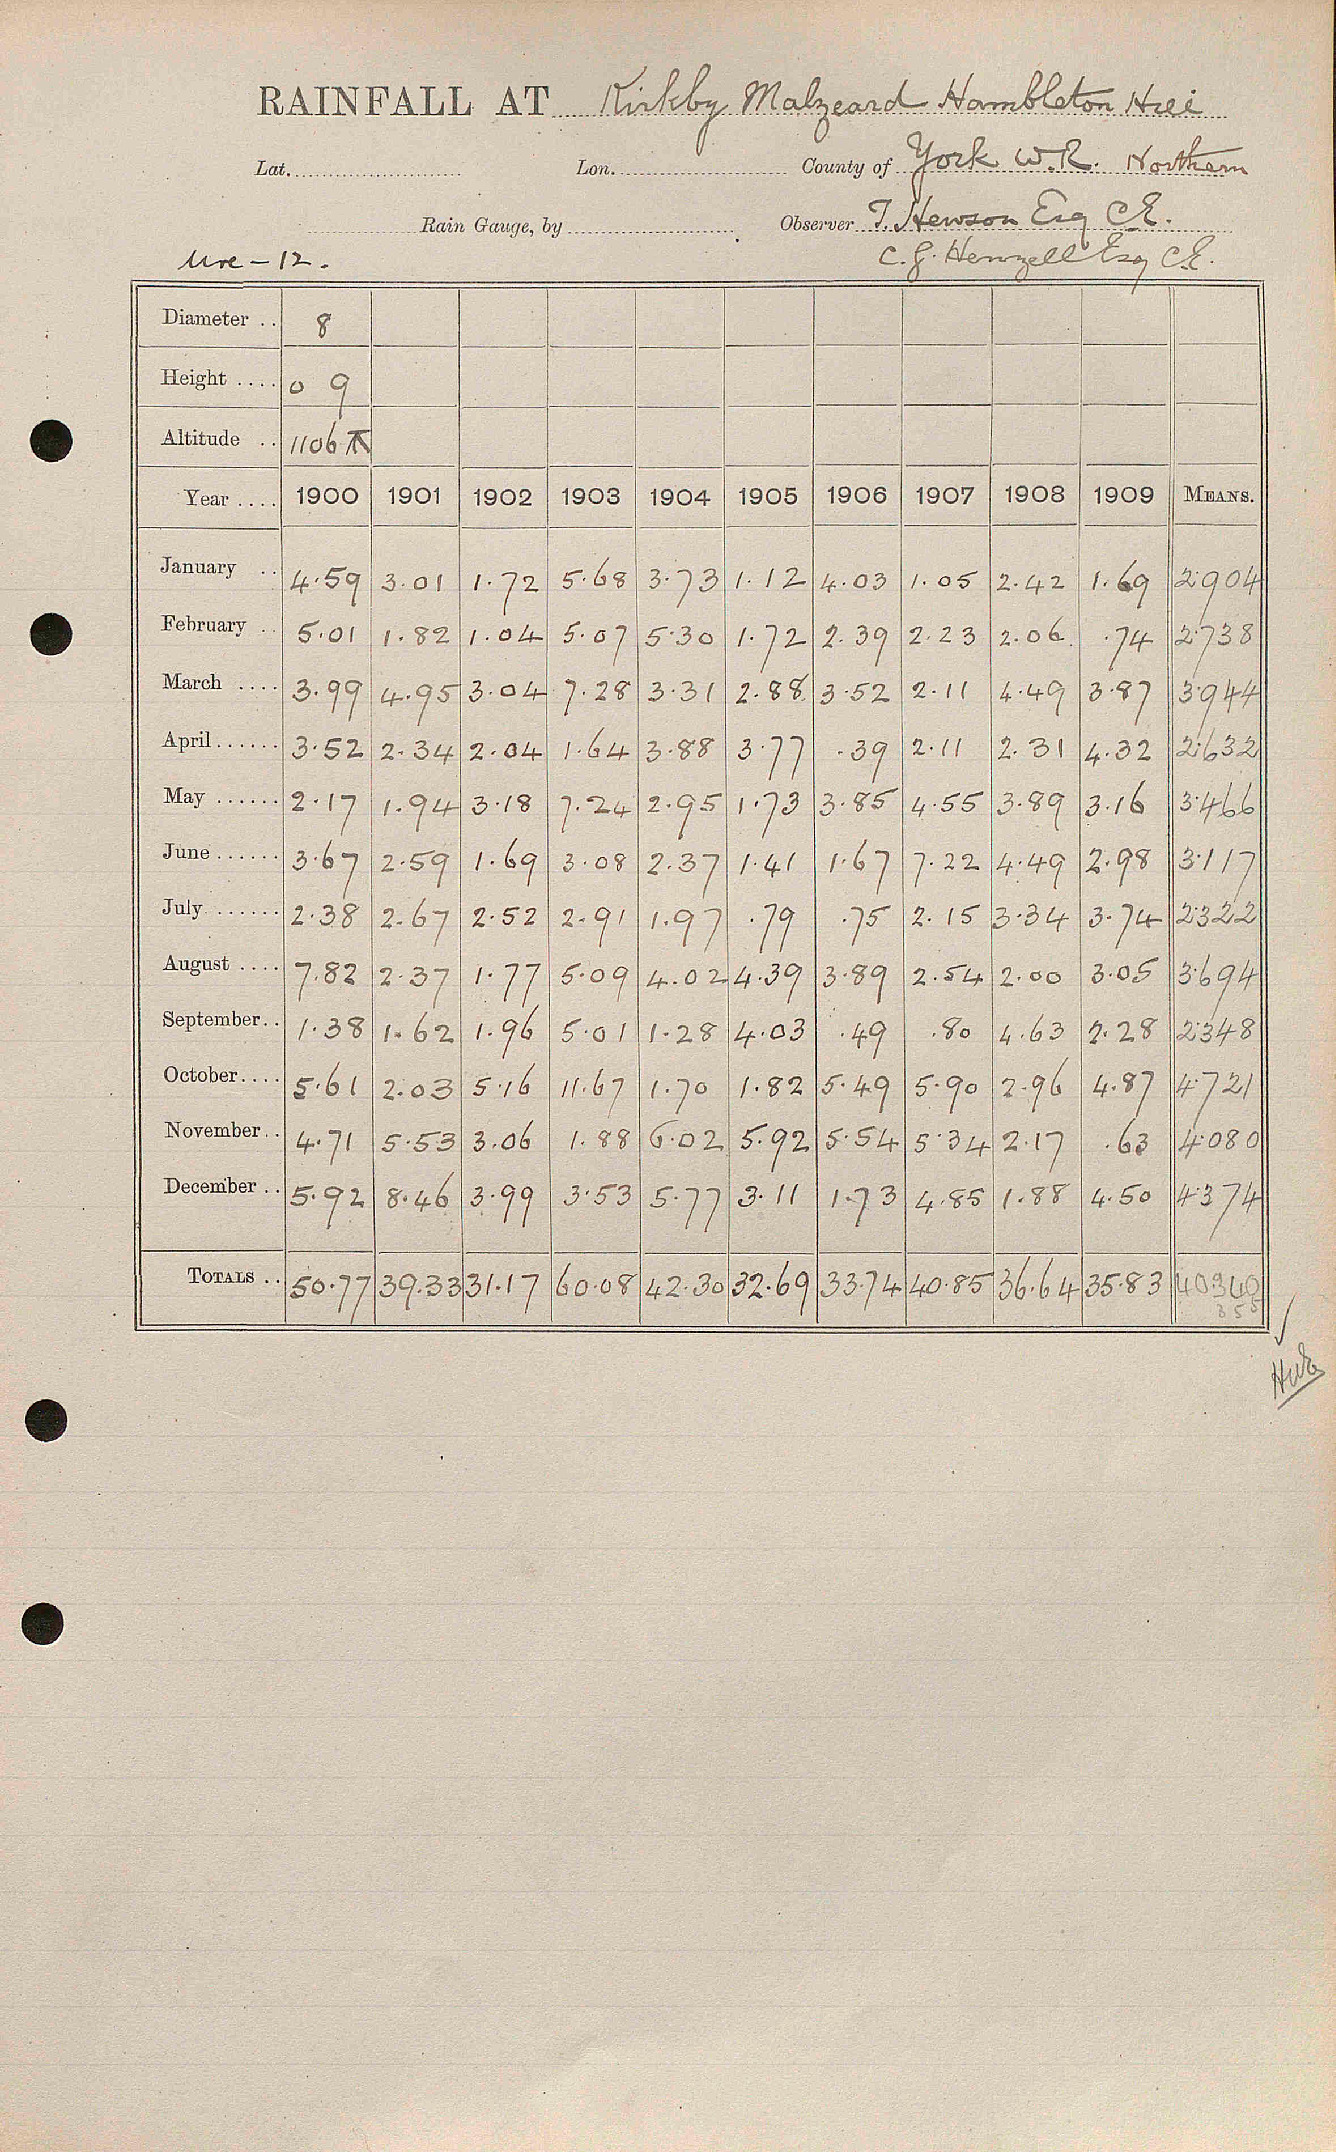 RAINFALL AT Kirkby Malzeard Hambleton Hill
Lat. Lon. County of York W.R. Northern
Rain Gauge, by Observer T. Hewson Esq C.E.
Ure - 12. C. G. Henzell Esq C.E.
Diameter .. 8
Height .... 0 9
Altitude .. 1106
Year .... 1900 1901 1902 1903 1904 1905 1906 1907 1908 1909 MEANS.
January .. 4.59 3.01 1.72 5.68 3.73 1.12 4.03 1.05 2.42 1.69 2.904
February .. 5.01 1.82 1.04 5.07 5.30 1.72 2.39 2.23 2.06 .74 2.738
March .... 3.99 4.95 3.04 7.28 3.31 2.88 3.52 2.11 4.49 3.87 3.944
April...... 3.52 2.34 2.04 1.64 3.88 3.77 .39 2.11 2.31 4.32 2.632
May ...... 2.17 1.94 3.18 7.24 2.95 1.73 3.85 4.55 3.89 3.16 3.466
June...... 3.67 2.59 1.69 3.08 2.37 1.41 1.67 7.22 4.49 2.98 3.117
July ...... 2.38 2.67 2.52 2.91 1.97 .79 .75 2.15 3.34 3.74 2.322
August .... 7.82 2.37 1.77 5.09 4.02 4.39 3.89 2.54 2.00 3.05 3.694
September.. 1.38 1.62 1.96 5.01 1.28 4.03 .49 .80 4.63 2.28 2.348
October.... 5.61 2.03 5.16 11.67 1.70 1.82 5.49 5.90 2.96 4.87 4.721
November.. 4.71 5.53 3.06 1.88 6.02 5.92 5.54 5.34 2.17 .63 4.080
December .. 5.92 8.46 3.99 3.53 5.77 3.11 1.73 4.85 1.88 4.50 4.374
TOTALS .. 50.77 39.33 31.17 60.08 42.30 32.69 33.74 40.85 36.64 35.83 40340
355